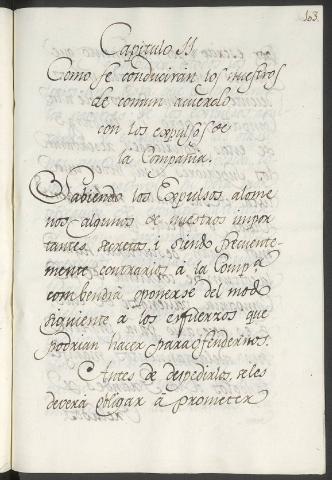 103.
Capitulo 11
Como se conducirán los nuestros
de comun acuerdo
con los expulsos de
la Compañia.
Sabiendo los Expulsos, alome
nos algunos de nuestros impor
tantes secretos, i siendo frecuente-
mente contrarios á la Comp.a
combendrá oponerse del modo
siguiente a los esfuerzos que
podrian hacer para ofendernos.
Antes de despedirlos, se les
deverá obligar á prometer